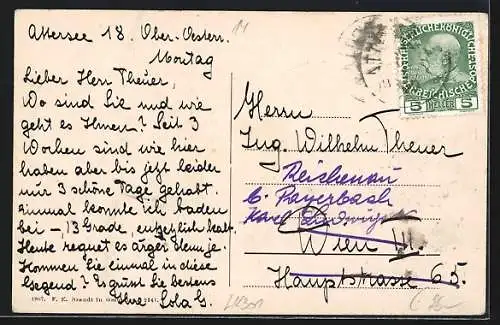 Attersee 18. Ober-Oestern.
Montag
Lieber Herr Theuer,
Wo sind Sie und wie
geht es Ihnen? Seit 3
Wochen sind wir hier
haben aber bis jetzt leider
nur 3 schöne Tage gehabt.
Einmal konnte ich baden
bei – 13 Grade, entsetzlich kalt.
Heute regnet es ärger denn je.
Kommen Sie einmal in diese
Gegend? Es grüßt Sie bestens
Ihre Lola G.
1907. F. E. Brandt in
Herrn
Ing. Wilhelm Theuer
Reichenau
b. Payerbach
Karl Ludwig
Wien
Hauptstrasse 65.
5 HELLER 5